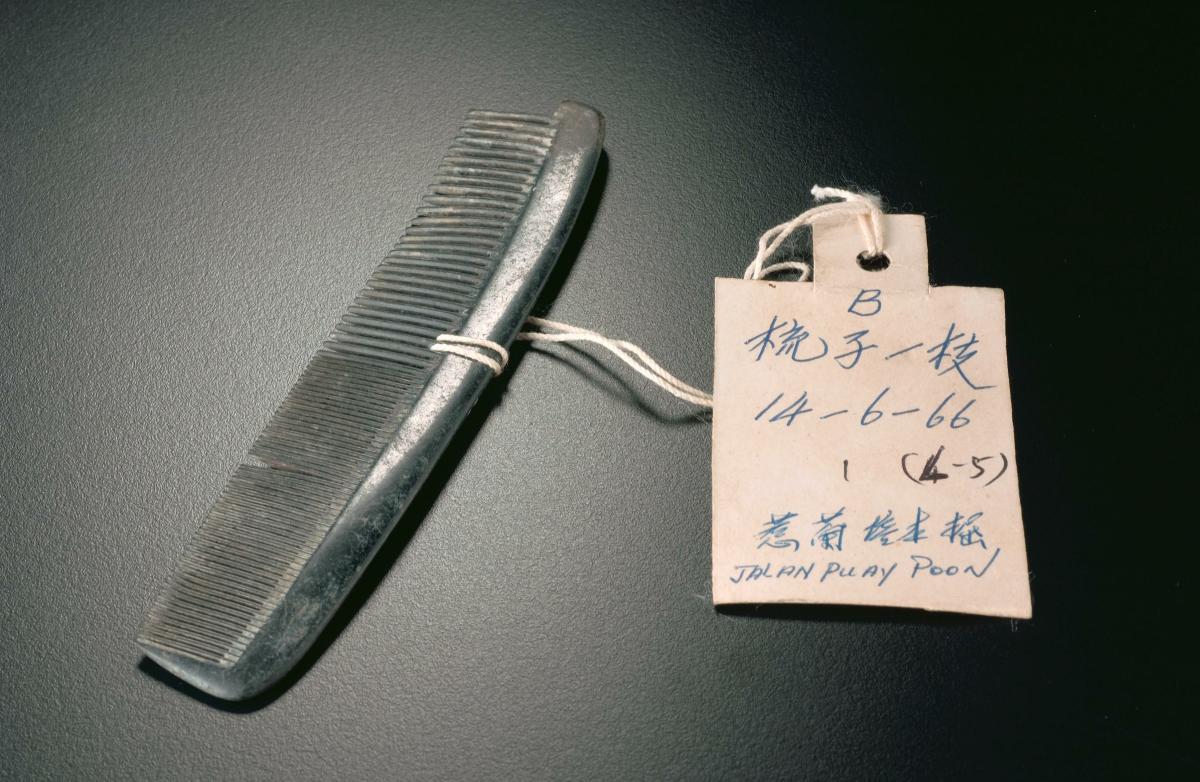 B
梳子一枝
14-6-66
1 (4-5)
惹蘭培本掘
JALAN PUAY POON